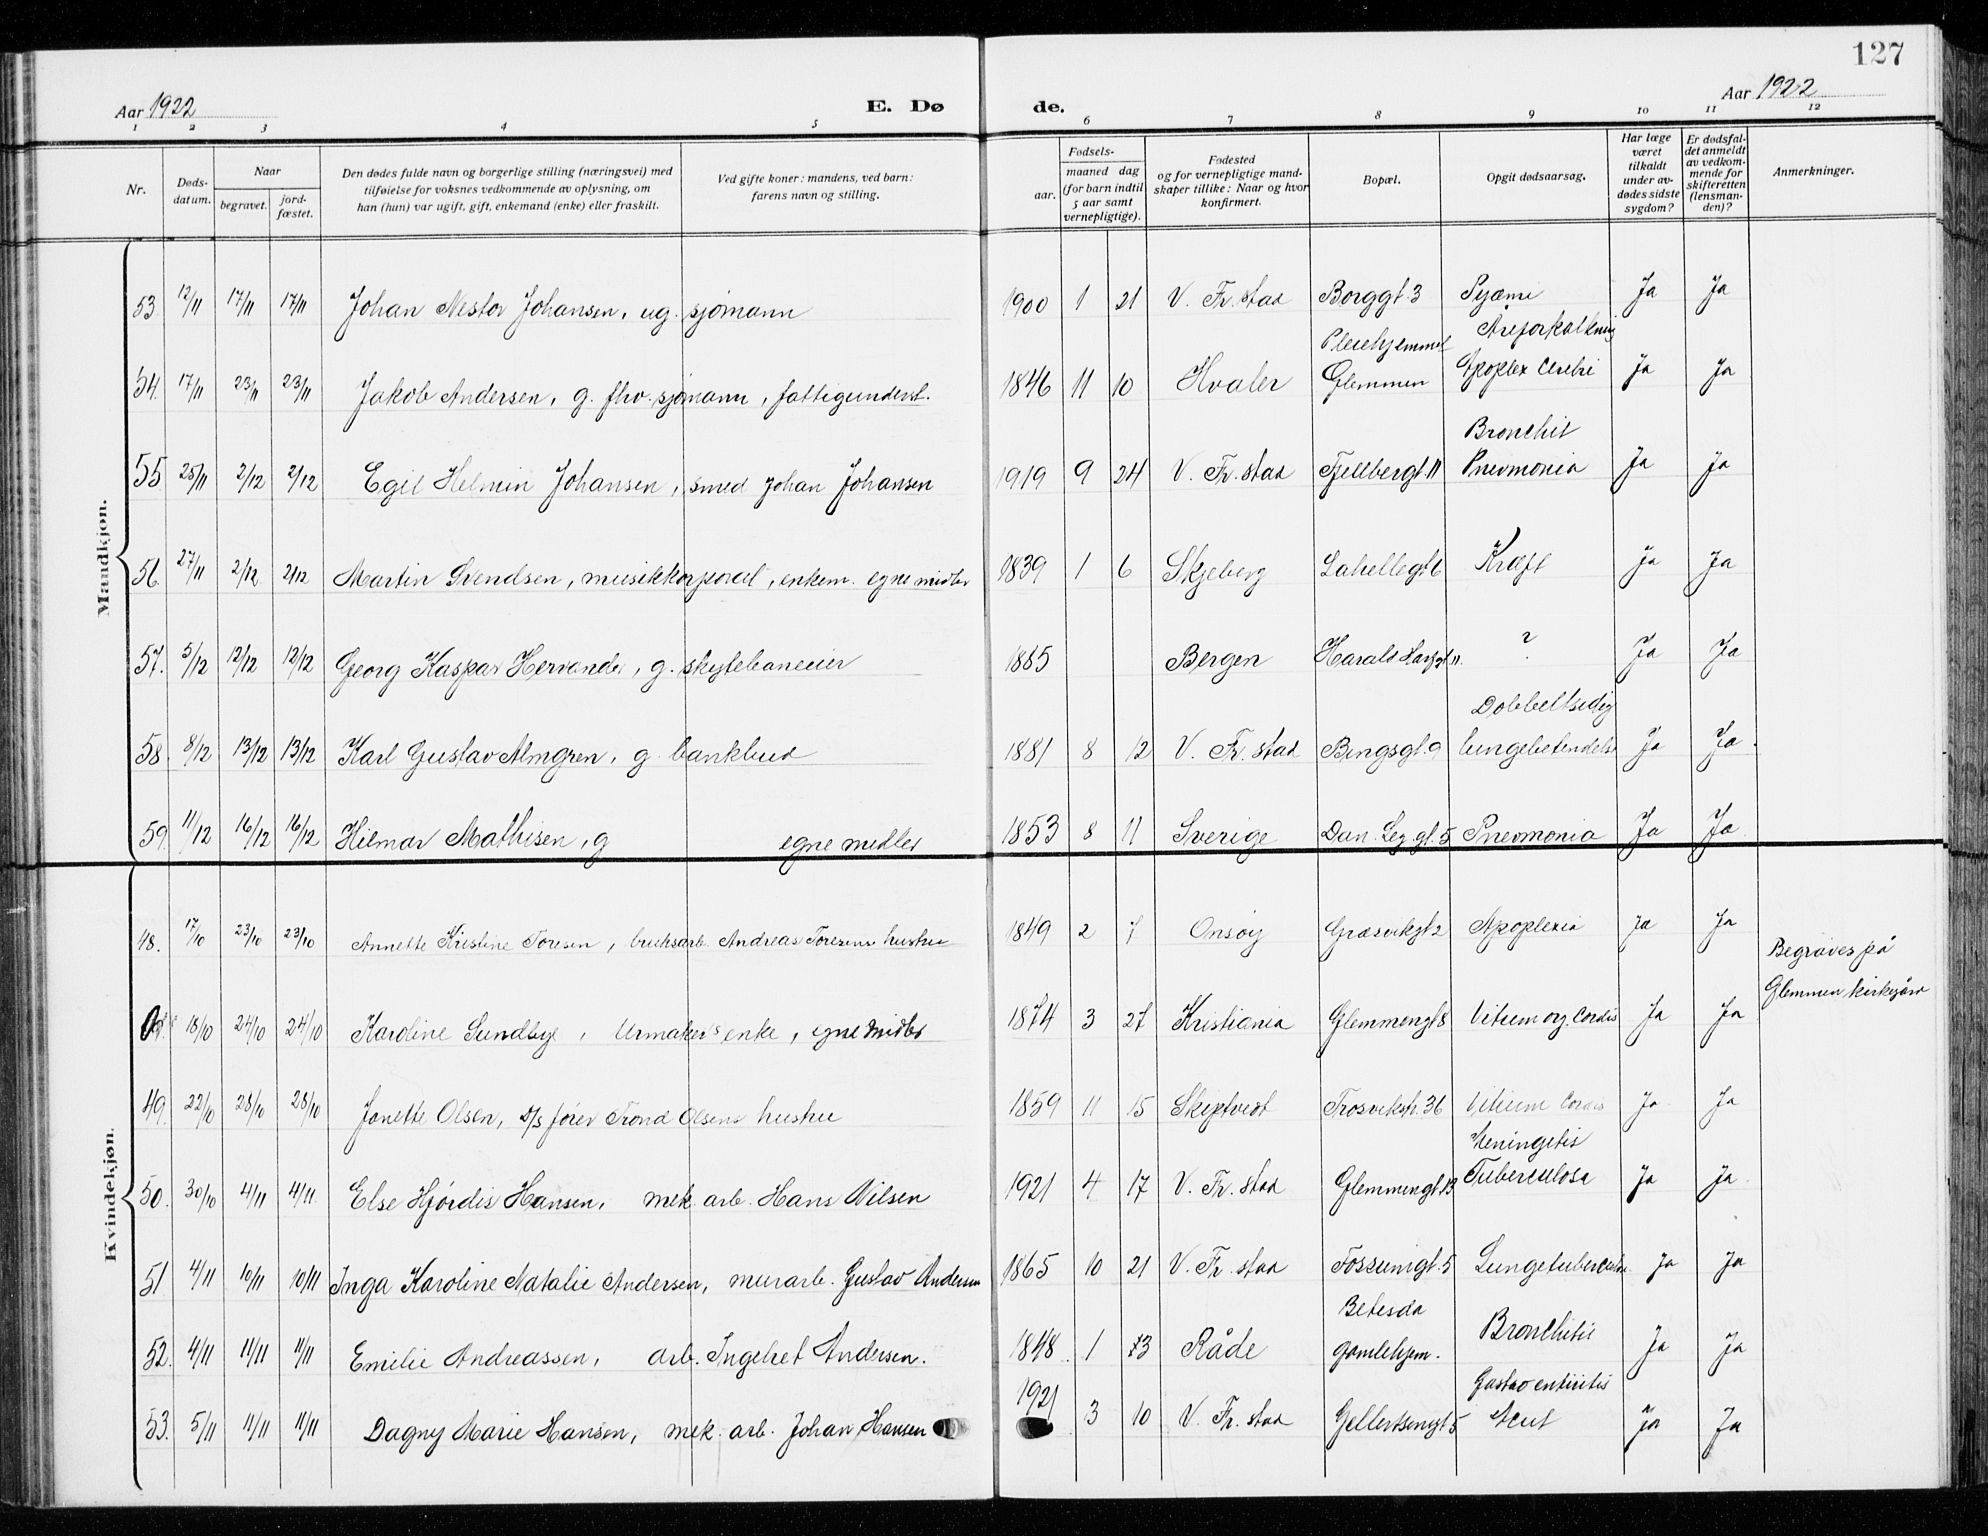 127
Aar 1922 E. Dø de. Aar 1922
1 2 3 4 5 6 7 8 9 10 11 12
Nr. Døds-datum. Naar begravet. jord-fæstet. Den dødes fulde navn og borgerlige stilling (næringsvei) med tilføielse for voksnes vedkommende av oplysning, om han (hun) var ugift, gift, enkemand (enke) eller fraskilt. Ved gifte koner: mandens, ved barn: farens navn og stilling. Fødsels- aar. maaned dag (for barn indtil 5 aar samt vernepligtige). Fødested og for vernepligtige mandskaper tillike: Naar og hvor konfirmert. Bopæl. Opgit dødsaarsag. Har læge været tilkaldt under avdødes sidste sygdom? Er dødsfaldet anmeldt av vedkommende for skifteretten (lensmanden)? Anmerkninger.
Mandkjøn.
53. 12/11 17/11 17/11 Johan Nestor Johansen, ug. sjømann 1900 1 21 V. Fr.stad Borggt. 3 Pyæmi Ja Ja
54. 17/11 23/11 23/11 Jakob Andersen, g. fhv. sjømann, fattigunderst. 1846 11 10 Hvaler Pleiehjemmet Glemmen Areforkalkning Apoplex Cerebri Ja Ja
55 25/11 2/12 2/12 Egil Helmin Johansen, smed Johan Johansen 1919 9 24 V. Fr.stad Fjellbergt. 11 Bronchit Pnevmonia Ja Ja
56. 27/11 2/12 2/12 Martin Svendsen, musikkorporal, enkem. egne midler 1839 1 6 Skjeberg Lahellegt. 6 Kræft Ja Ja
57. 5/12 12/12 12/12 Georg Kaspar, g. skytebaneeier 1865 Bergen Harald 11. ? Ja Ja
58. 8/12 13/12 13/12 Karl Gustav Almgren, g. bankbud 1881 8 12 V. Fr.stad Bingsgt. 9 Dobbeltsidig lungebetendelse Ja Ja.
59. 11/12 16/12 16/12 Hilmar Mathisen, g egne midler 1853 8 11 Sverige Dan. Leg.gt. 5 Pnevmonia Ja Ja.
Kvindekjøn.
48. 17/10 23/10 23/10 Annette Kristine Toresen, bruksarb. Andreas Toresens hustru 1849 2 7 Onsøy Græsvikgt 2 Apoplexia Ja Ja
18/10 24/10 24/10 Karoline Sundbye, Urmaker's enke, egne midler 1874 3 27 Kristiania Glemmengt 8 Vitium org. Cordis Ja Ja Begraves på Glemmen kirkegård
49. 22/10 28/10 28/10 Janette Olsen, D/s fører Trond Olsens hustru 1859 11 15 Skiptvedt Trosvikstr. 36 Vitium Cordis Ja Ja
50. 30/10 4/11 4/11. Else Hjørdis Hansen, mek. arb. Hans Nilsen 1921 4 17 V. Fr.stad Glemmengt. 13 Meningetis Tuberculosa Ja Ja.
51 4/11 10/11 10/11 Inga Karoline Natalie Andersen, murarb. Gustav Andersen 1865 10 21 V. Fr.stad Fossumgt. 5 Lungetuberculose Ja Ja
52. 4/11 11/11 11/11 Emilie Andreassen, arb. Ingebret Andersen. 1848. 1 23 Råde Betesda gamlehjem. Bronchitis Ja Ja
53. 5/11 11/11 11/11 Dagny Marie Hansen, mek. arb. Johan Hansen 1921 3 10 V. Fr.stad Gellertsengt 5 Gastro enteritis Acut Ja Ja